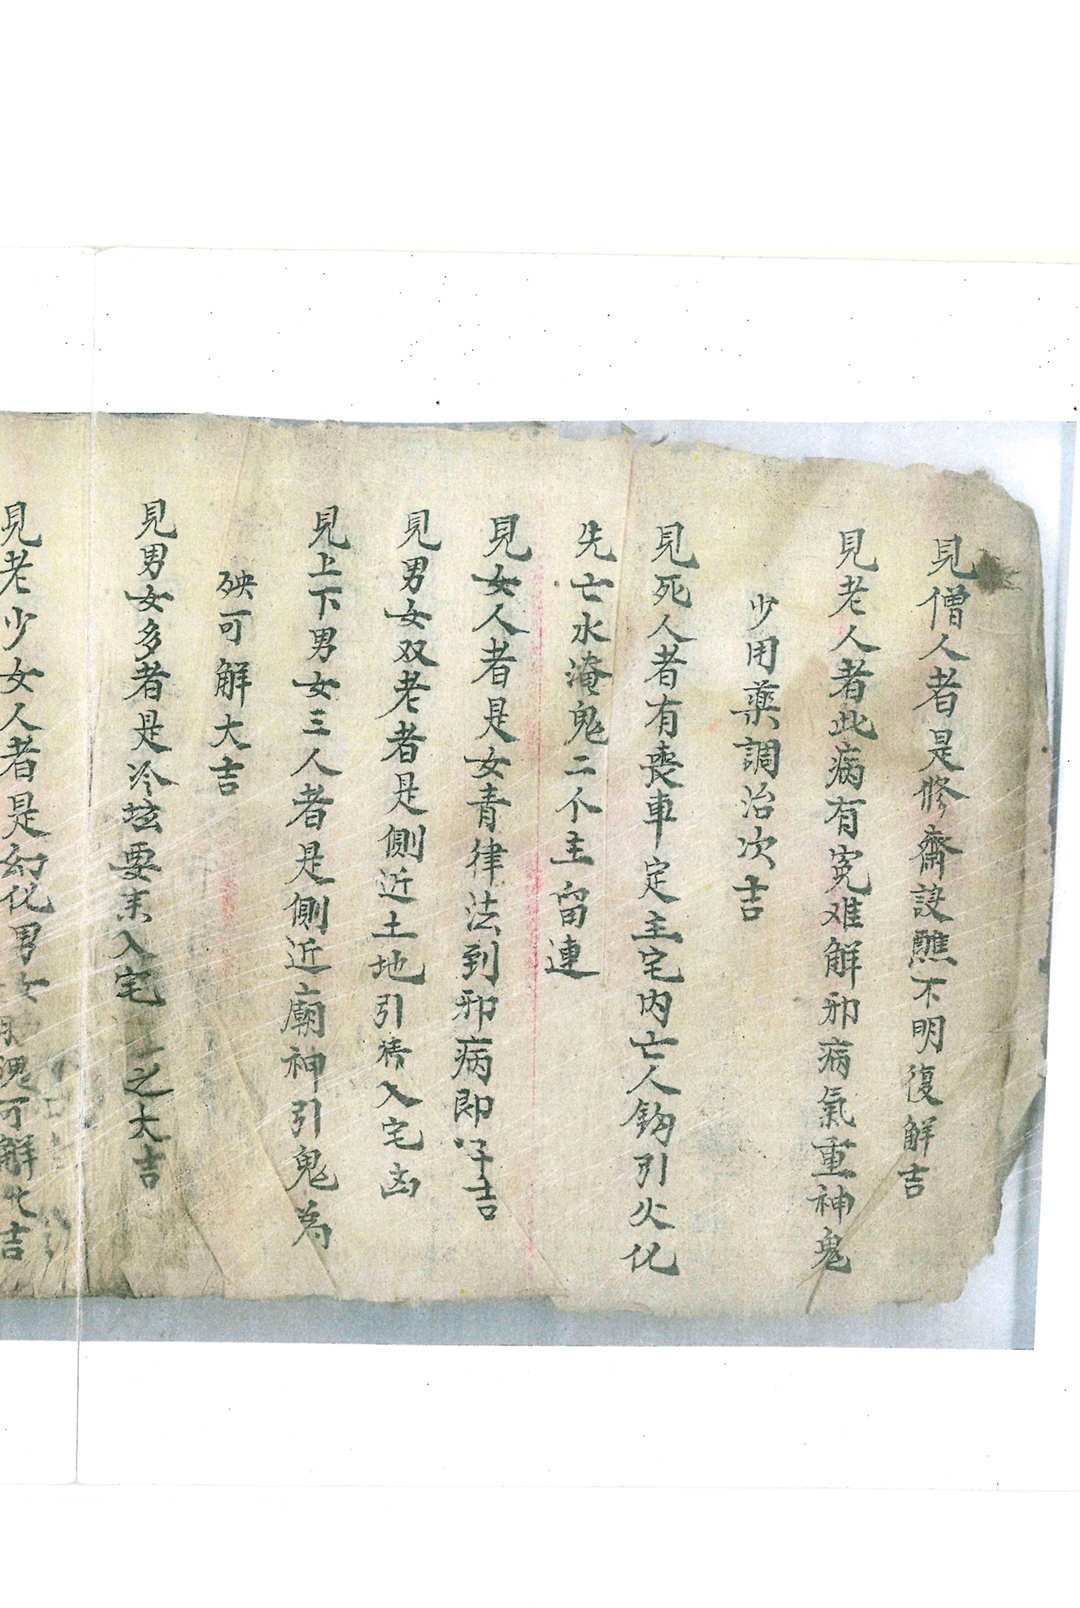 見僧人者是修齋設醮不明復解吉
見老人者此病有冤难解邪病氣重神鬼
少用藥調治次吉
見死人者有喪車定主宅内亡人鈎引火化
先亡水淹鬼二个主留連
見女人者是女青律法到邪病即好吉
見男女双老者是側近土地引禱入宅凶
見上下男女三人者是側近廟神引鬼為
殃可解大吉
見男女多者是冷坛要未入宅 之大吉
見老少女人者是幻化男女 魂可解化吉